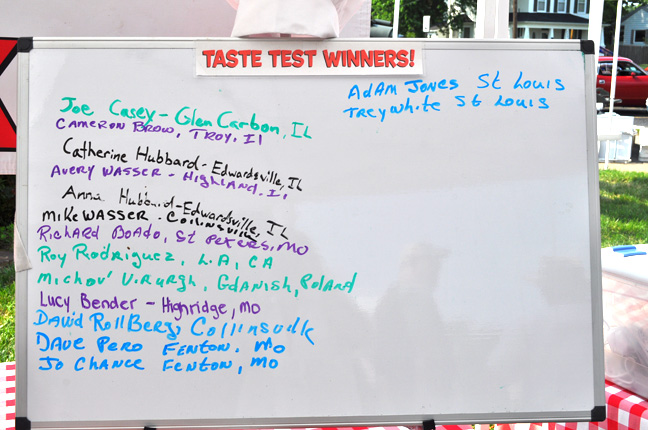 TASTE TEST WINNERS!
Joe Casey - Glen Carbon, IL
CAMERON BROW, TROY, Il
Catherine Hubbard - Edwardsville, IL
AVERY WASSER - HIGHLAND, Il
Anna Hubbard - Edwardsville, IL
MIKE WASSER - COllINSVIllE
RICHARD BOADO, ST PETERS, MO
Roy Rodriguez, L.A, CA
GDANISH, POLAND
Lucy Bender - Highridge, MO
DAVID ROllBERG, COllINSVIllE
DAVE PERO FENTON, MO
JO CHANCE FENTON, MO
ADAM JONES ST LOUIS
TREY WHITE ST LOUIS